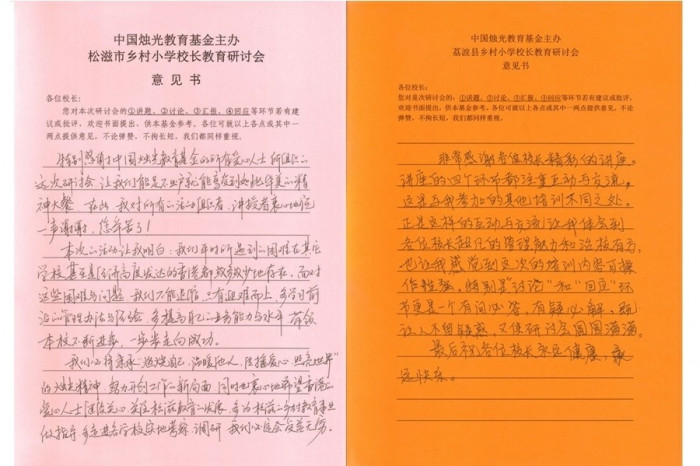 中国烛光教育基金主办
松滋市乡村小学校长教育研讨会
意见书
各位校长：
您对本次研讨会的①讲题、②讨论、③汇报、④回应等环节若有建
议或批评，欢迎书面提出，供本基金参考。各位可就以上各点或其中一
两点提供意见，不论弹赞、不拘长短，我们都同样重视。
特别感谢中国烛光教育基金的所有爱心人士所组织的
这次研讨会，让我们能足不出户就能享受到如此丰美的精
神大餐。在此，我对所有的活动组织者、讲授者衷心地道
一声谢谢，您辛苦了！
本次活动让我明白：我们平时所遇到的困难在其它
学校甚至是经济高度发达的香港都或多或少地存在，面对
这些困难与问题，我们不能退缩，只有迎难而上，多学习前
沿的管理办法与经验，多提高自己的业务能力与水平，带领
本校不断进步，一步步走向成功。
我们必将秉承“燃烧自己，温暖他人，传播爱心，照亮世界”
的烛光精神，努力开创工作的新局面，同时也衷心地希望香港的
爱心人士
做指导，多走进各学校实地考察、调研，我们必定会受益无穷。
中国烛光教育基金主办
荔波县乡村小学校长教育研讨会
意见书
各位校长：
您对是次研讨会的：①讲题、②讨论、③汇报、④回应等环节若有建议或批评，
欢迎书面提出，供本基金参考。各位可就以上各点或其中一两点提供意见，
不论弹赞、不拘长短，我们都同样重视。
非常感谢各位校长精彩的讲座。
讲座的四个环节都注重互动与交流，
这是与我参加的其他培训不同之处。
正是这样的互动与交流，让我体会到
各位校长超凡的管理能力和治校有方，
也让我感觉到这次的培训内容可操
作性强。特别是“讨论”和“回应”环
节更是一个有问必答，有疑必解，既
让人不留疑惑，又使研讨会圆圆满满。
最后祝各位校长永远健康，永
远快乐。